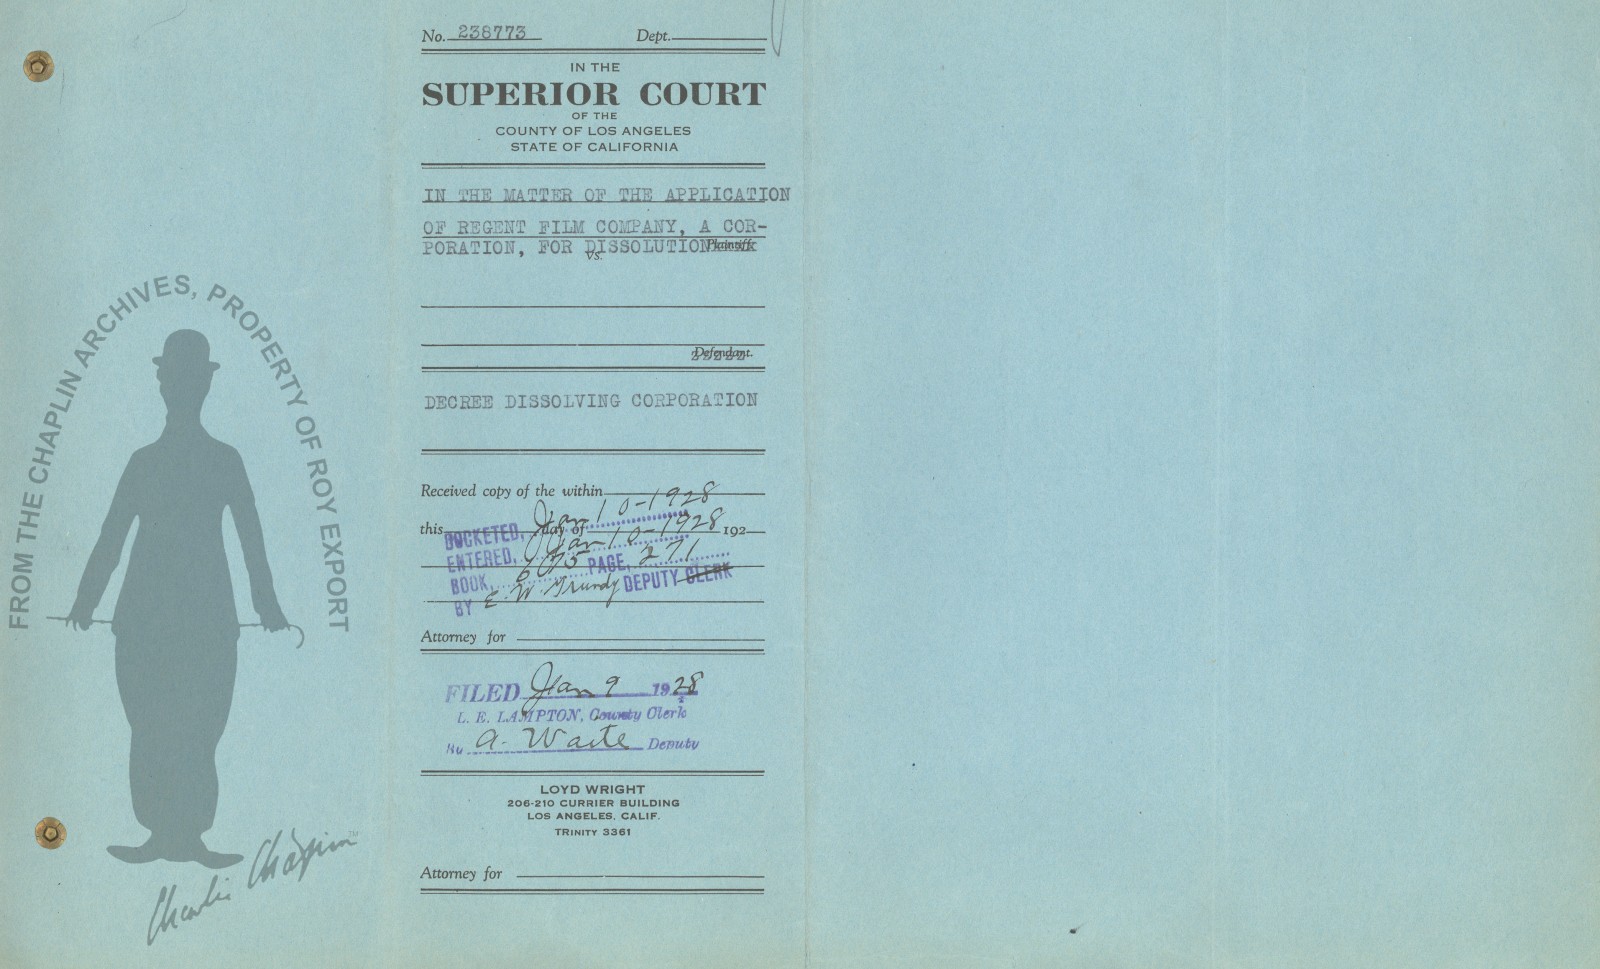 No. 238773 Dept.
IN THE
SUPERIOR COURT
OF THE
COUNTY OF LOS ANGELES
STATE OF CALIFORNIA
IN THE MATTER OF THE APPLICATION
OF REGENT FILM COMPANY, A COR-
PORATION, FOR DISSOLUTION Plaintiff
vs.
Defendant.
DECREE DISSOLVING CORPORATION
Received copy of the within
this day of 192
DOCKETED, Jan 10-1928
ENTERED, Jan 10-1928
BOOK, 675 PAGE, 271
BY E. W. Grundy DEPUTY CLERK
Attorney for
FILED Jan 9 1928
L. E. LAMPTON, County Clerk
By A. Waite Deputy
LOYD WRIGHT
206-210 CURRIER BUILDING
LOS ANGELES, CALIF.
TRINITY 3361
Attorney for
FROM THE CHAPLIN ARCHIVES, PROPERTY OF ROY EXPORT
Charlie Chaplin™